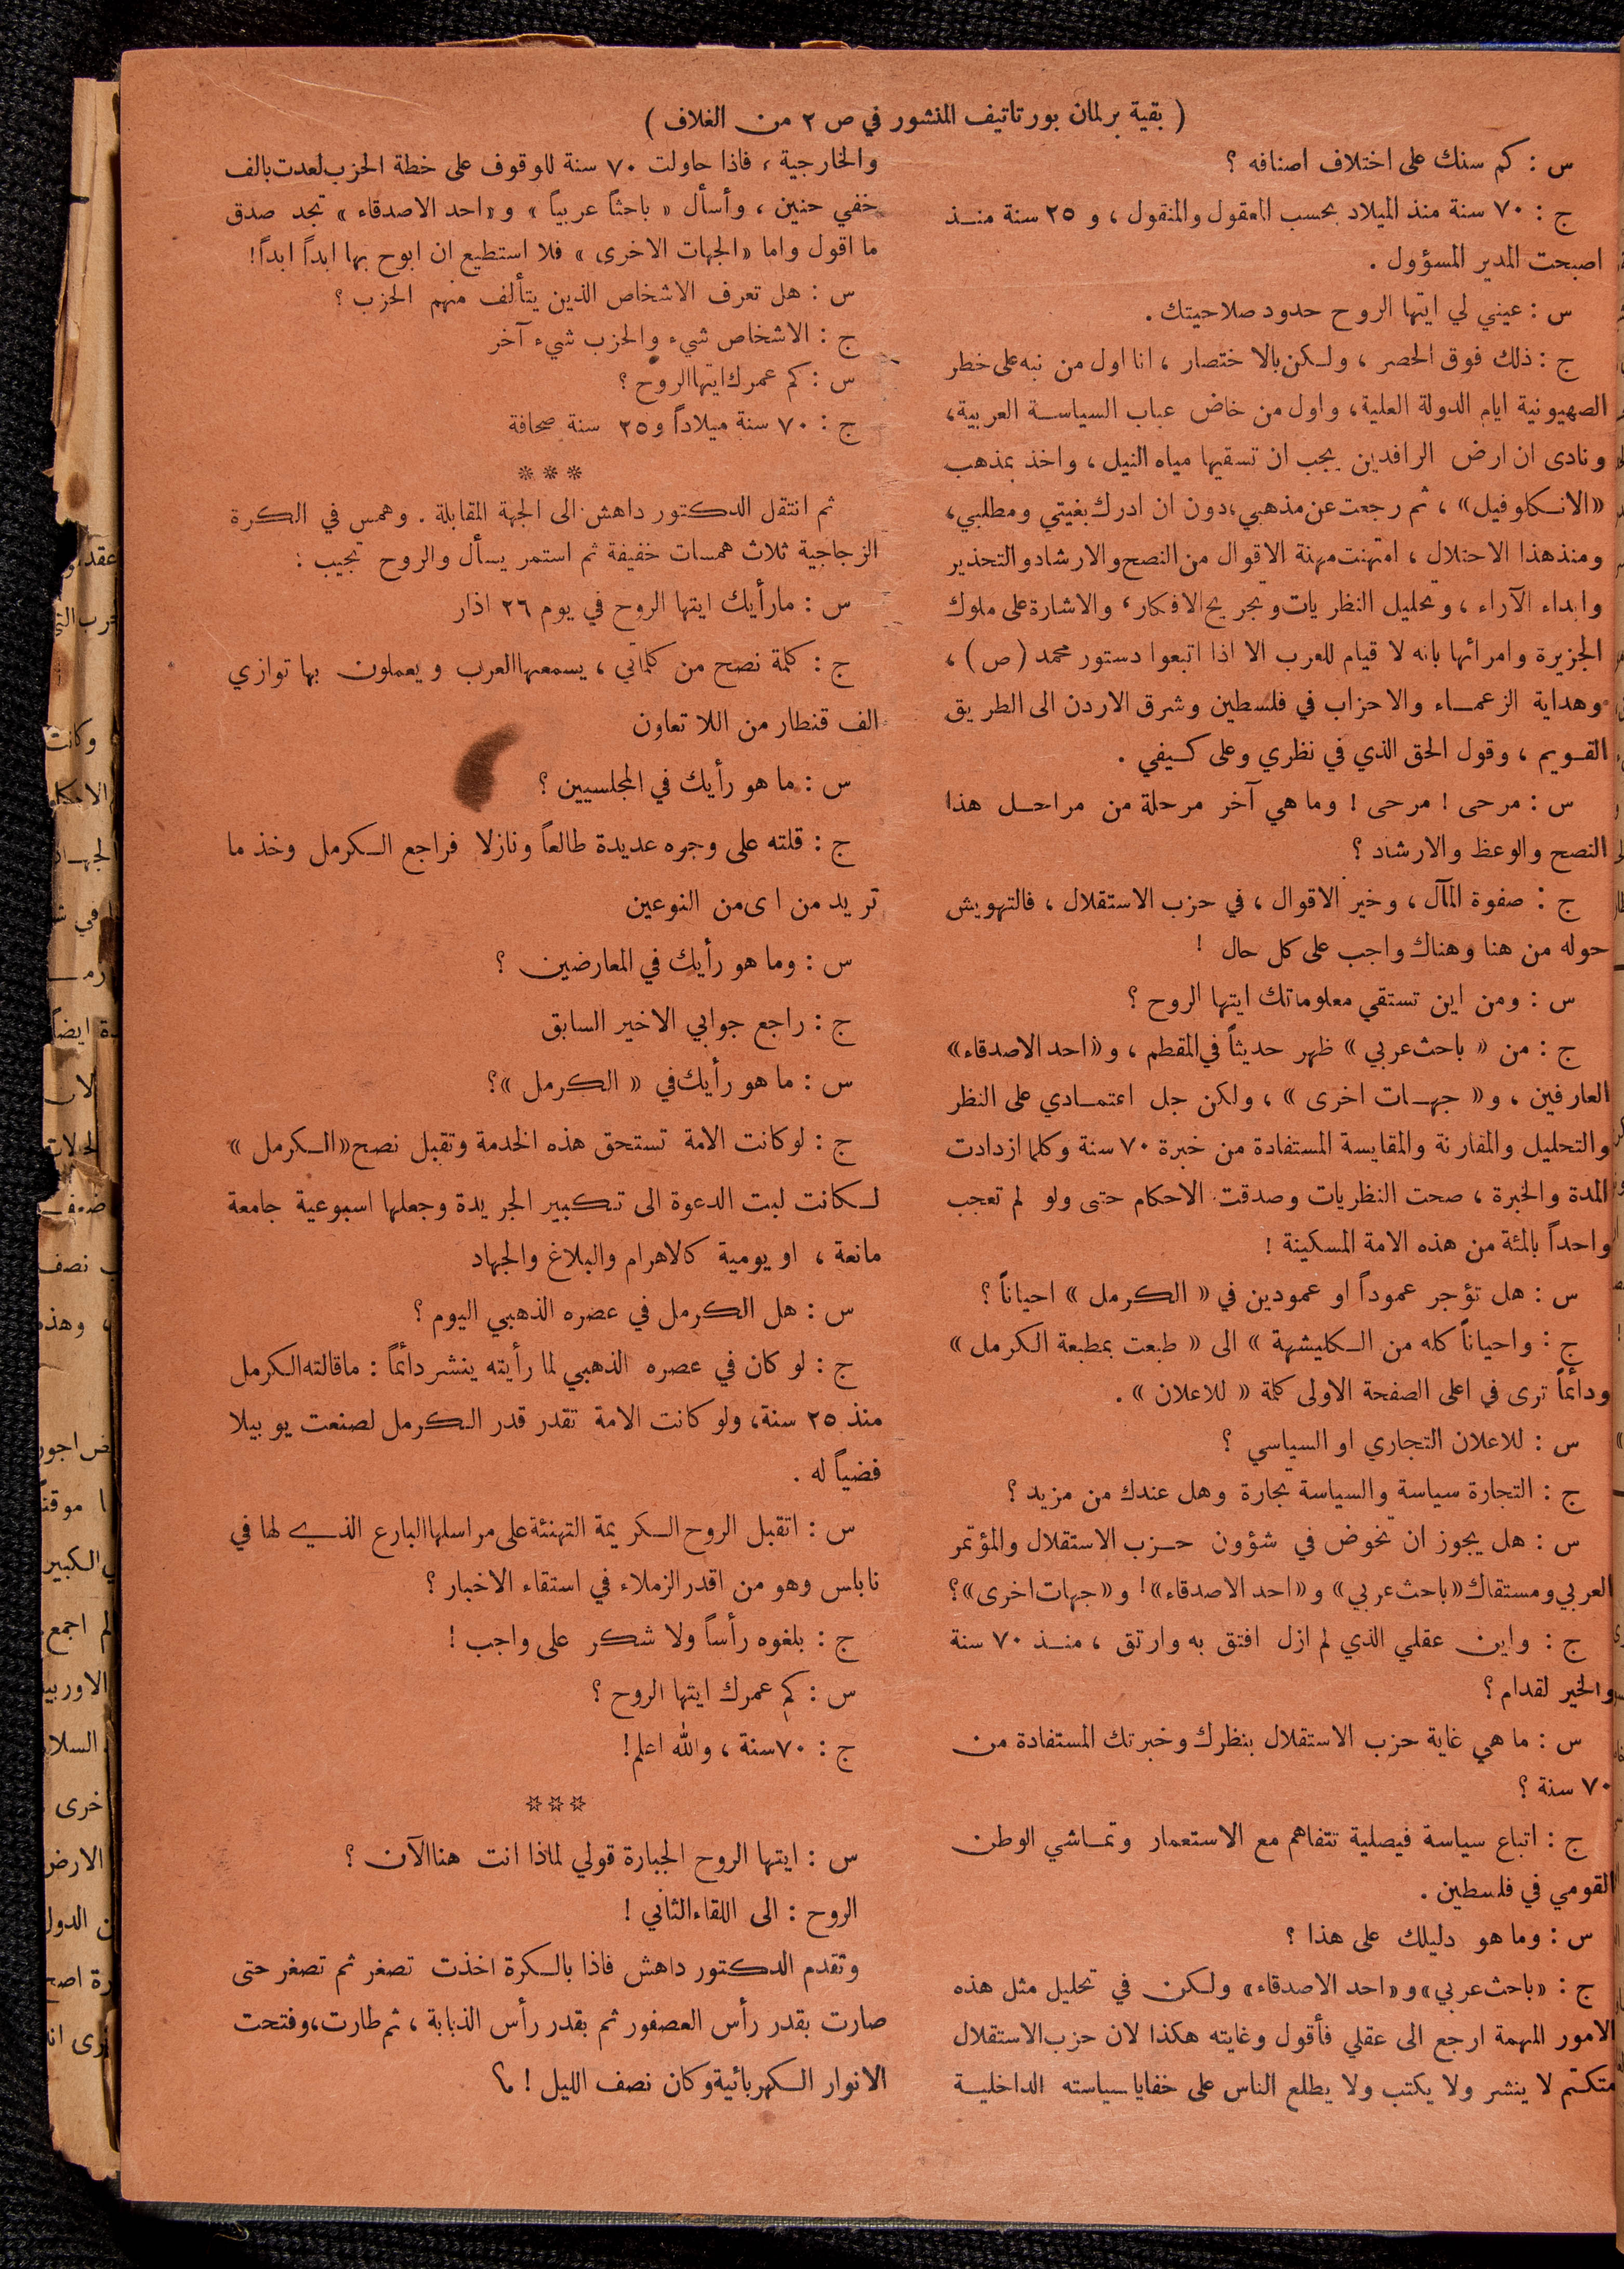 ( بقية برلمان بورتاتيف المنشور في ص ٢ من الغلاف )
س : كم سنك على اختلاف اصنافه ؟
ج : ٧٠ سنة منذ الميلاد بحسب المعقول والمنقول ، و ٢٥ سنة منذ
اصبحت المدير المسؤول .
س : عيني لي ايتها الروح حدود صلاحيتك .
ج : ذلك فوق الحصر ، ولكن بالاختصار ، انا اول من نبه على خطر
الصهيونية ايام الدولة العلية ، واول من خاض عباب السياسة العربية ،
ونادى ان ارض الرافدين يجب ان تسقيها مياه النيل ، واخذ بمذهب
«الانكلوفيل» ، ثم رجعت عن مذهبي ، دون ان ادرك بغيتي ومطلبي ،
ومنذ هذا الاحتلال ، امتهنت مهنة الاقوال من النصح والارشاد والتحذير
وابداء الآراء ، وتحليل النظريات وتجريح الافكار ، والاشارة على ملوك
الجزيرة وامرائها بانه لا قيام للعرب الا اذا اتبعوا دستور محمد (ص) ،
وهداية الزعماء والاحزاب في فلسطين وشرق الاردن الى الطريق
القويم ، وقول الحق الذي في نظري وعلى كيفي .
س : مرحى ! مرحى ! وما هي آخر مرحلة من مراحل هذا
النصح والوعظ والارشاد ؟
ج : صفوة المآل ، وخير الاقوال ، في حزب الاستقلال ، فالتهويش
حوله من هنا وهناك واجب على كل حال !
س : ومن اين تستقي معلوماتك ايتها الروح ؟
ج : من « باحث عربي » ظهر حديثاً في المقطم ، و«احد الاصدقاء»
العارفين ، و« جهات اخرى » ، ولكن جل اعتمادي على النظر
والتحليل والمقارنة والمقايسة المستفادة من خبرة ٧٠ سنة وكلما ازدادت
المدة والخبرة ، صحت النظريات وصدقت الاحكام حتى ولو لم تعجب
واحداً بالمئة من هذه الامة المسكينة !
س : هل تؤجر عموداً او عمودين في « الكرمل » احياناً ؟
ج : واحياناً كله من الكليشهة » الى « طبعت بمطبعة الكرمل »
ودائماً ترى في اعلى الصفحة الاولى كلمة « للاعلان » .
س : للاعلان التجاري او السياسي ؟
ج : التجارة سياسة والسياسة تجارة وهل عندك من مزيد ؟
س : هل يجوز ان تخوض في شؤون حزب الاستقلال والمؤتمر
العربي ومستقاك «باحث عربي» و«احد الاصدقاء» ! و«جهات اخرى» ؟
ج : واين عقلي الذي لم ازل افتق به وارتق ، منذ ٧٠ سنة
والخير لقدام ؟
س : ما هي غاية حزب الاستقلال بنظرك وخبرتك المستفادة من
٧٠ سنة ؟
ج : اتباع سياسة فيصلية تتفاهم مع الاستعمار وتماشي الوطن
القومي في فلسطين .
س : وما هو دليلك على هذا ؟
ج : «باحث عربي» و«احد الاصدقاء» ولكن في تحليل مثل هذه
الامور المهمة ارجع الى عقلي فأقول وغايته هكذا لان حزب الاستقلال
متكتم لا ينشر ولا يكتب ولا يطلع الناس على خفايا سياسته الداخلية
والخارجية ، فاذا حاولت ٧٠ سنة للوقوف على خطة الحزب لعدت بالف
خفي حنين ، وأسأل « باحثاً عربياً » و«احد الاصدقاء » تجد صدق
ما اقول واما «الجهات الاخرى » فلا استطيع ان ابوح بها ابداً ابداً !
س : هل تعرف الاشخاص الذين يتألف منهم الحزب ؟
ج : الاشخاص شيء والحزب شيء آخر
س : كم عمرك ايتها الروح ؟
ج : ٧٠ سنة ميلاداً و٢٥ سنة صحافة
***
ثم انتقل الدكتور داهش الى الجهة المقابلة . وهمس في الكرة
الزجاجية ثلاث همسات خفيفة ثم استمر يسأل والروح تجيب :
س : مارأيك ايتها الروح في يوم ٢٦ اذار
ج : كلمة نصح من كلماتي ، يسمعها العرب ويعملون بها توازي
الف قنطار من اللا تعاون
س : ما هو رأيك في المجلسيين ؟
ج : قلته على وجوه عديدة طالعاً ونازلا فراجع الكرمل وخذ ما
تريد من اى من النوعين
س : وما هو رأيك في المعارضين ؟
ج : راجع جوابي الاخير السابق
س : ما هو رأيك في « الكرمل »؟
ج : لو كانت الامة تستحق هذه الخدمة وتقبل نصح «الكرمل »
لكانت لبت الدعوة الى تكبير الجريدة وجعلها اسبوعية جامعة
مانعة ، او يومية كالاهرام والبلاغ والجهاد
س : هل الكرمل في عصره الذهبي اليوم ؟
ج : لو كان في عصره الذهبي لما رأيته ينشر دائماً : ما قالته الكرمل
منذ ٢٥ سنة ، ولو كانت الامة تقدر قدر الكرمل لصنعت يوبيلا
فضياً له .
س : اتقبل الروح الكريمة التهنئة على مراسلها البارع الذي لها في
نابلس وهو من اقدر الزملاء في استقاء الاخبار ؟
ج : بلغوه رأساً ولا شكر على واجب !
س : كم عمرك ايتها الروح ؟
ج : ٧٠ سنة ، والله اعلم !
***
س : ايتها الروح الجبارة قولي لماذا انت هنا الآن ؟
الروح : الى اللقاء الثاني !
وتقدم الدكتور داهش فاذا بالكرة اخذت تصغر ثم تصغر حتى
صارت بقدر رأس العصفور ثم بقدر رأس الذبابة ، ثم طارت ، وفتحت
الانوار الكهربائية وكان نصف الليل !